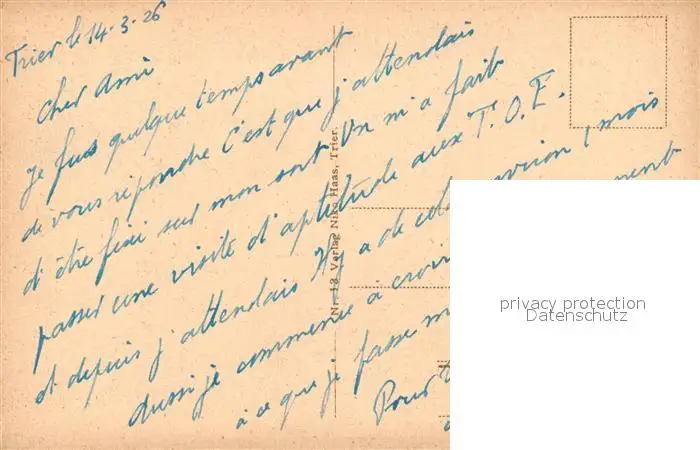 Trier le 14-3-26
Cher Ami
Je fus quelque temps avant
de vous répondre C'est que j'attendais
d'être fixé sur mon sort On m'a fait
passer une visite d'aptitude aux T.O.E.
et depuis j'attendais Il y a de cela environ 1 mois
Aussi je commence à croire
à ce que je fasse m
Pour
Nr. 13 Verlag Niko Haas, Trier.
privacy protection
Datenschutz